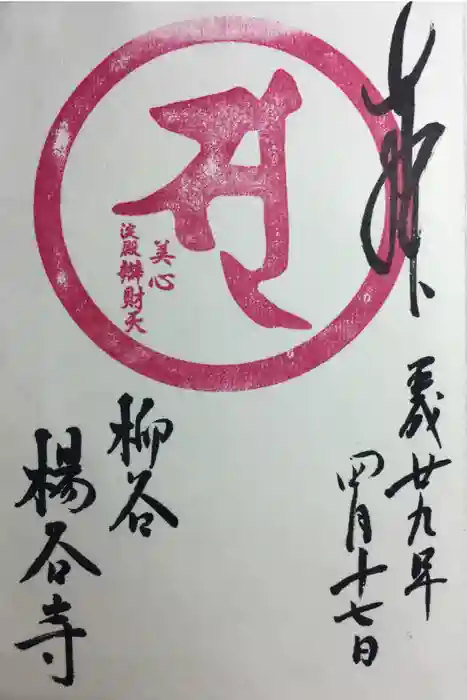 奉拝
平成廿九年
四月十七日
美心
淀殿辨財天
柳谷
楊谷寺